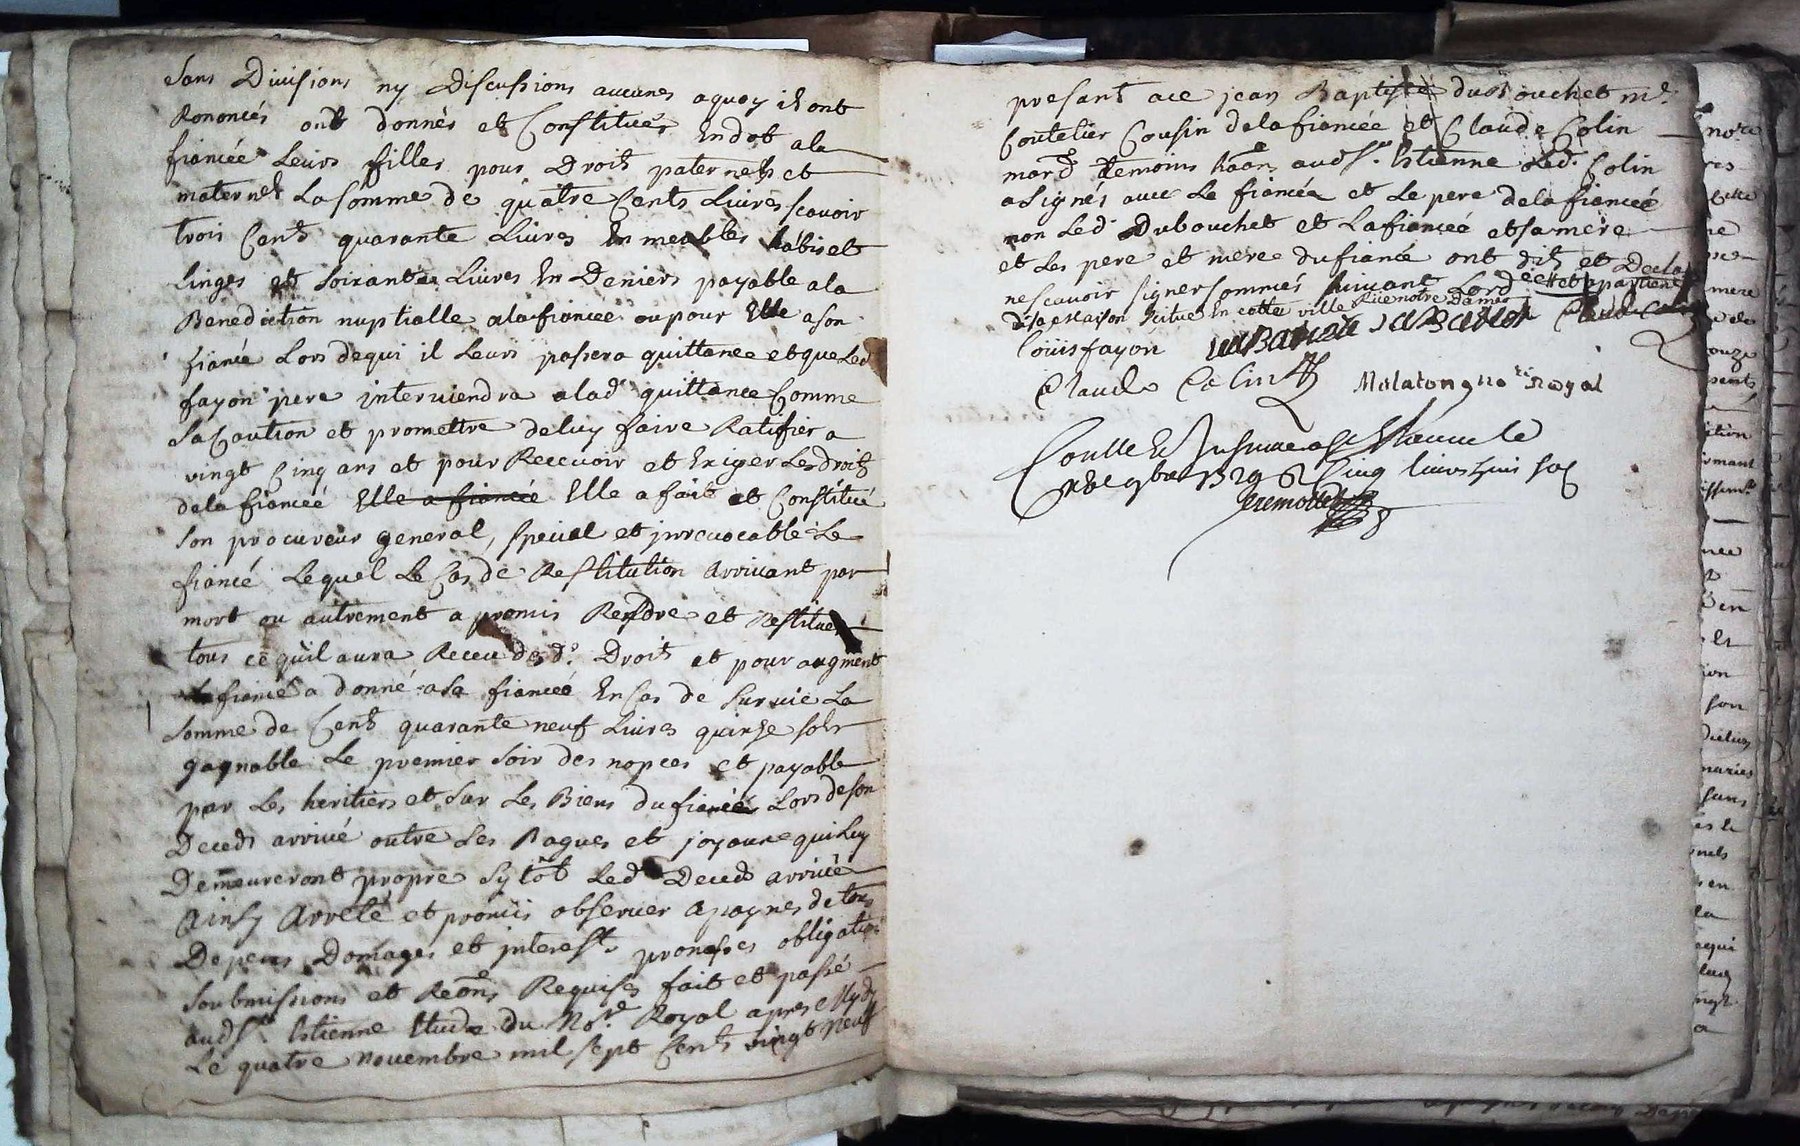 sans Divisions ny Discussions aucunes aquoy ils ont
Renoncés ont donnés et Constitués En dot ala
fiancée Leurs filles pour Droits paternels et
maternels La somme de quatre Cents Livres scavoir
trois Cents quarante Livres En meubles habis et
Linges et soixante Livres En Deniers payable ala
Benediction nuptialle ala fiancée ou pour Elle a son
fiancé Lors de qui il Leurs passera quittance et que Led
fayon pere interviendra alad quittance Comme
sa Caution et promettre deluy faire Ratifier a
vingt Cinq ans et pour Recevoir et Exiger Les droits
dela fianceé Elle a fiancée Elle a fait et Constitué
son procureur general, special et irrevocable Le
fiancé Lequel Le Cas de Restitution arrivant par
mort ou autrement a promis Rendre et Restituer
tous ce quil aura Receu desd. Droits et pour augment
Le fiancé a donné a sa fianceé En Cas de survie La
somme de Cents quarante neuf Livres quinze sols
gagnable Le premier soir des nopces et payable
par Les heritiers et sur Les Biens du fiancé Lors de son
Deceds arrivé outre Les Bagues et joyaux qui Luy
Demeureront propre sytôt Led Deceds arrivé
Ainsy Arrêté et promis observer apaynes de tous
Depens Domages et interests promesses obligations
soubmissions et Reons Requises fait et passé
aud St Estienne Etude du Nore Royal apres Mydy
Le quatre novembre mil sept Cents vingt neuf
presant a ce jean Baptiste dubouchet me.
Coutelier Cousin dela fiancée et Claude Colin
mard temoins aud St. Estienne Led. Colin
a signés avec Le fiancée et Le pere dela fiancée
non Led Dubouchet et La fianceé et sa mere
et Les pere et mere du fiancé ont dit et Declaré
ne scavoir signer sommés suivant Lord
situé En cette ville Rue notre Dame
Loüis fayon Claude Colin
Claude Colin Molaton nore Royal
Controllé St Etienne le
9bre 1729 Cinq livres sols